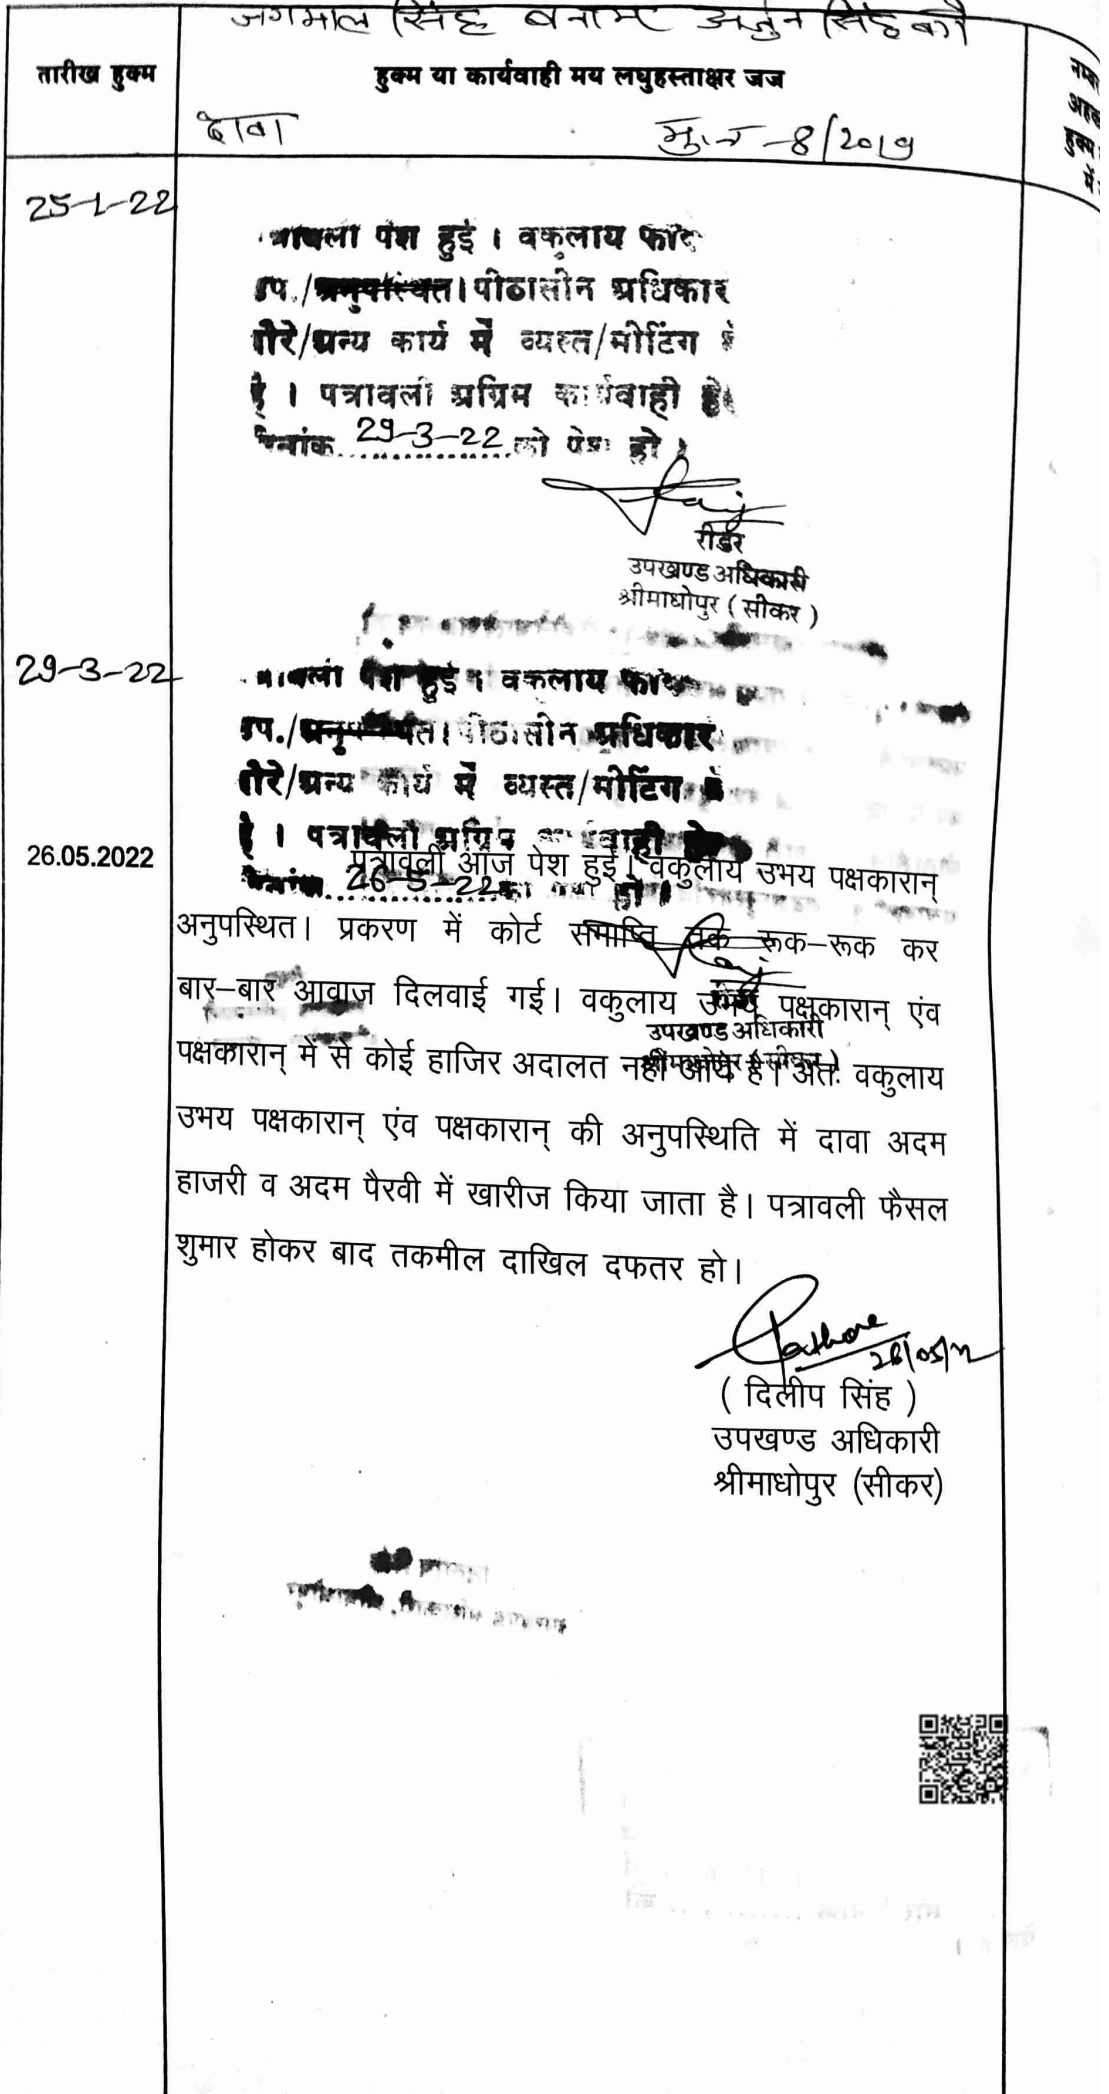 जगमाल सिंह बनाम अर्जुन सिंह
तारीख हुक्म
हुक्म या कार्यवाही मय लघुहस्ताक्षर जज
दावा
मु.न -8/2019
25-1-22
पेश हुई । वकुलाय
उप./अनुपस्थित। पीठासीन अधिकार
दौरे/अन्य कार्य में व्यस्त/मीटिंग
है । पत्रावली अग्रिम कार्यवाही
29-3-22 को पेश हो ।
रीडर
उपखण्ड अधिकारी
श्रीमाधोपुर ( सीकर )
29-3-22
पेश हुई । वकुलाय
उप./ पीठासीन अधिकार
दौरे/अन्य कार्य में व्यस्त/मीटिंग
है । पत्रावली अग्रिम
26-5-22 हो ।
उपखण्ड अधिकारी
26.05.2022
पत्रावली आज पेश हुई। वकुलाय उभय पक्षकारान्
अनुपस्थित। प्रकरण में कोर्ट समाप्ति तक रूक–रूक कर
बार–बार आवाज दिलवाई गई। वकुलाय उभय पक्षकारान् एंव
पक्षकारान् में से कोई हाजिर अदालत नहीं आये है। अतः वकुलाय
उभय पक्षकारान् एंव पक्षकारान् की अनुपस्थिति में दावा अदम
हाजरी व अदम पैरवी में खारीज किया जाता है। पत्रावली फैसल
शुमार होकर बाद तकमील दाखिल दफतर हो।
( दिलीप सिंह )
उपखण्ड अधिकारी
श्रीमाधोपुर (सीकर)